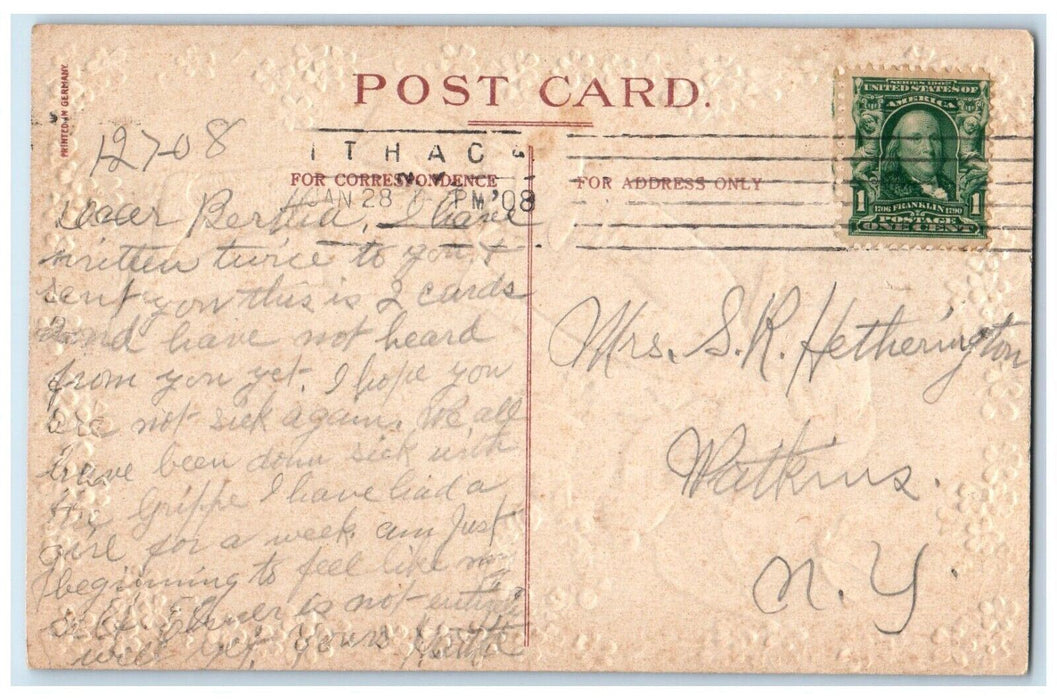 PRINTED IN GERMANY
POST CARD.
12708
ITHACA
N.Y.
JAN 28 PM '08
FOR CORRESPONDENCE
FOR ADDRESS ONLY
SERIES 1902
UNITED STATES OF
AMERICA
1 1
1706 FRANKLIN 1790
POSTAGE
ONE CENT
Dear Bertha, I have
written twice to you, +
sent you this is 2 cards
and have not heard
from you yet. I hope you
are not sick again. We all
have been down sick with
the Grippe I have had a
girl for a week. am just
beginning to feel like my
self. Elmer is not entirely
well yet. Yours
Mrs. S. R. Hetherington
Watkins.
N. Y.